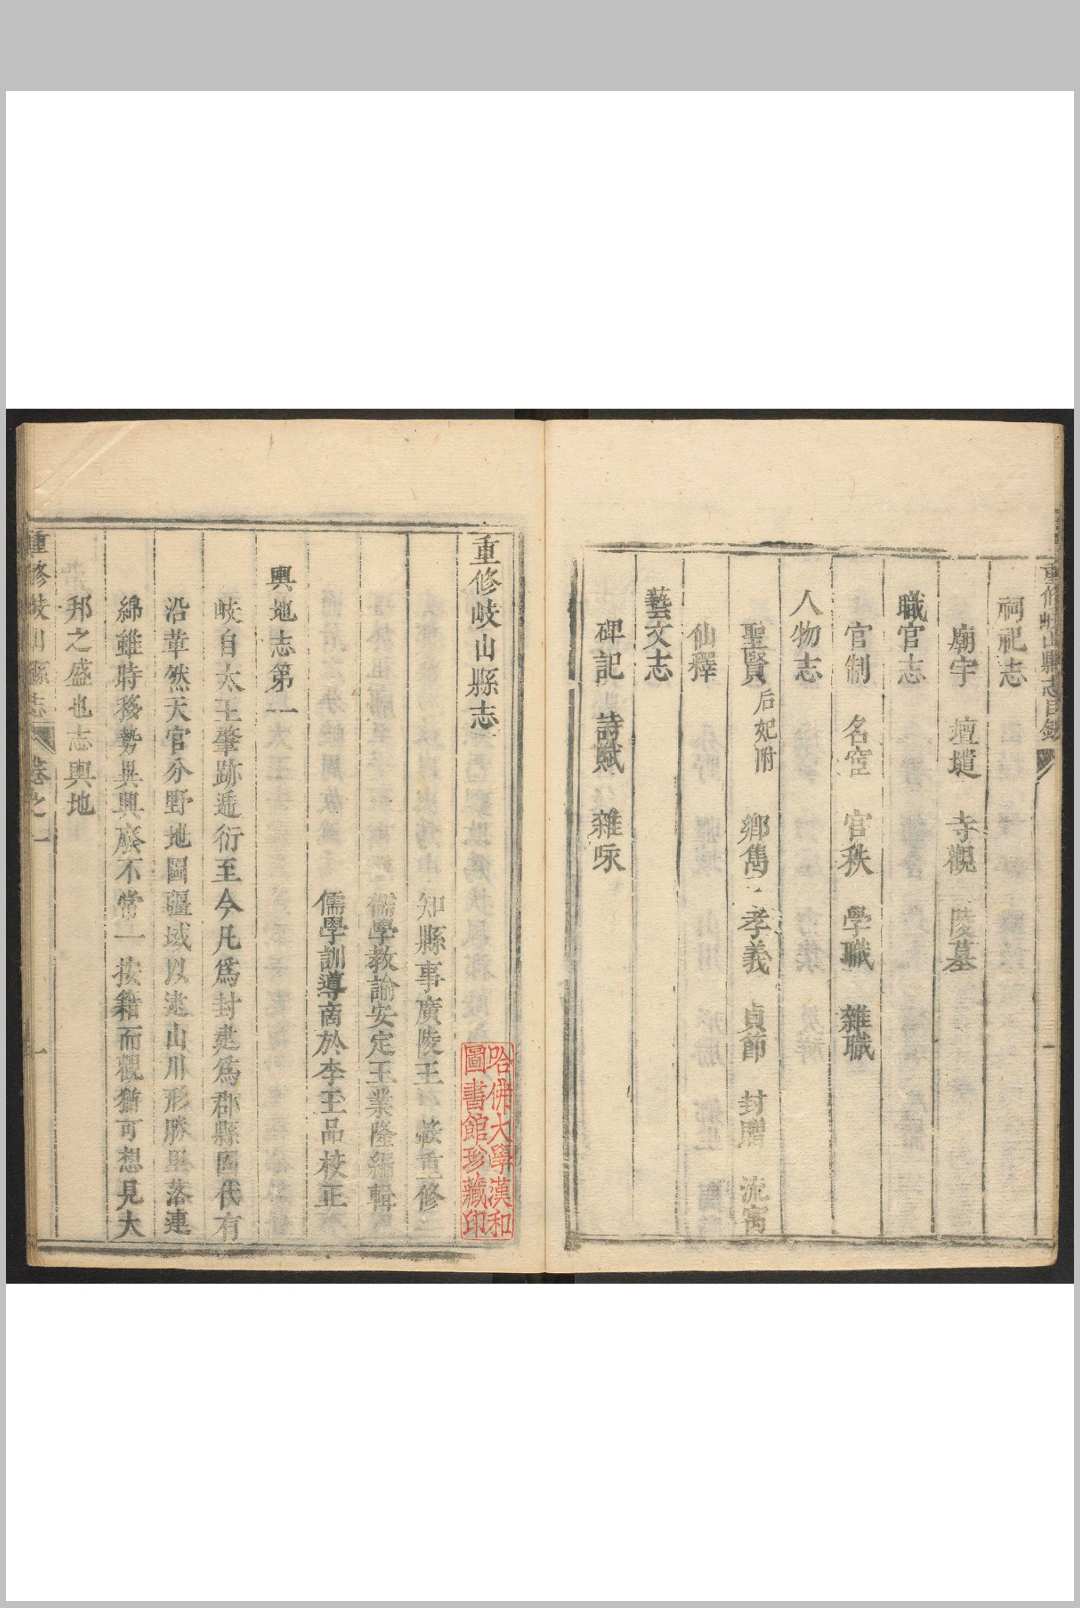 重修岐山縣志目錄
祠祀志
廟宇 壇壝 寺觀 陵墓
職官志
官制 名宦 官秩 學職 雜職
人物志
聖賢后妃附 鄉雋 孝義 貞節 封贈 流寓
仙釋
藝文志
碑記 詩賦 雜咏
重修岐山縣志
知縣事廣陵王 轂重修
儒學教諭安定王業隆編輯
儒學訓導商於李王品校正
輿地志第一
岐自太王肇跡遞衍至今凡爲封建爲郡縣國代有
沿革然天官分野地圖疆域以迨山川形勝里落連
綿雖時移勢異興廢不常一按籍而觀猶可想見大
邦之盛也志輿地
重修岐山縣志 卷之一 一
哈佛大學漢和
圖書館珍藏印